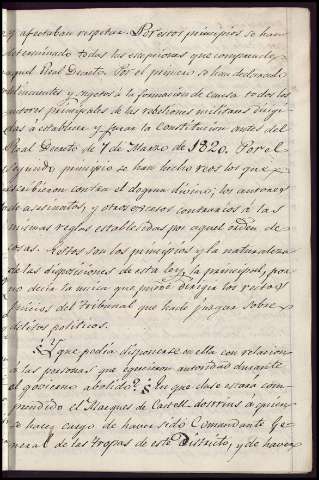 y afectaban respetar. Por estos principios se han
determinado todas las excepciones que comprende
aquel Real Decreto. Por el primero se han declarado
delincuentes y sugetos á la formacion de causa todos los
autores principales de las rebeliones militares dirigi-
das á establecer y jurar la Constitucion antes del
Real Decreto de 7 de Marzo de 1820. Por el
segundo principio se han hecho reos los que es-
cribieron contra el dogma divino; los autores
de asesinatos, y otros contrarios á las
mismas reglas establecidas por aquel orden de
cosas. Estos son los principios y la naturaleza
de las disposiciones de esta ley la principal, por
no decir la unica que puede dirigir los votos y
juicios del tribunal que hade juzgar sobre
delitos politicos.
¿Y que podia disponerse en ella con relacion
á las personas que egercieron autoridad durante
el govierno abolido? ¿En que clase estará com-
prendido el Marques de Castell-dosrius á quien
se hace cargo de haver sido Comandante Ge-
neral de las tropas de este Distrito, y de haver